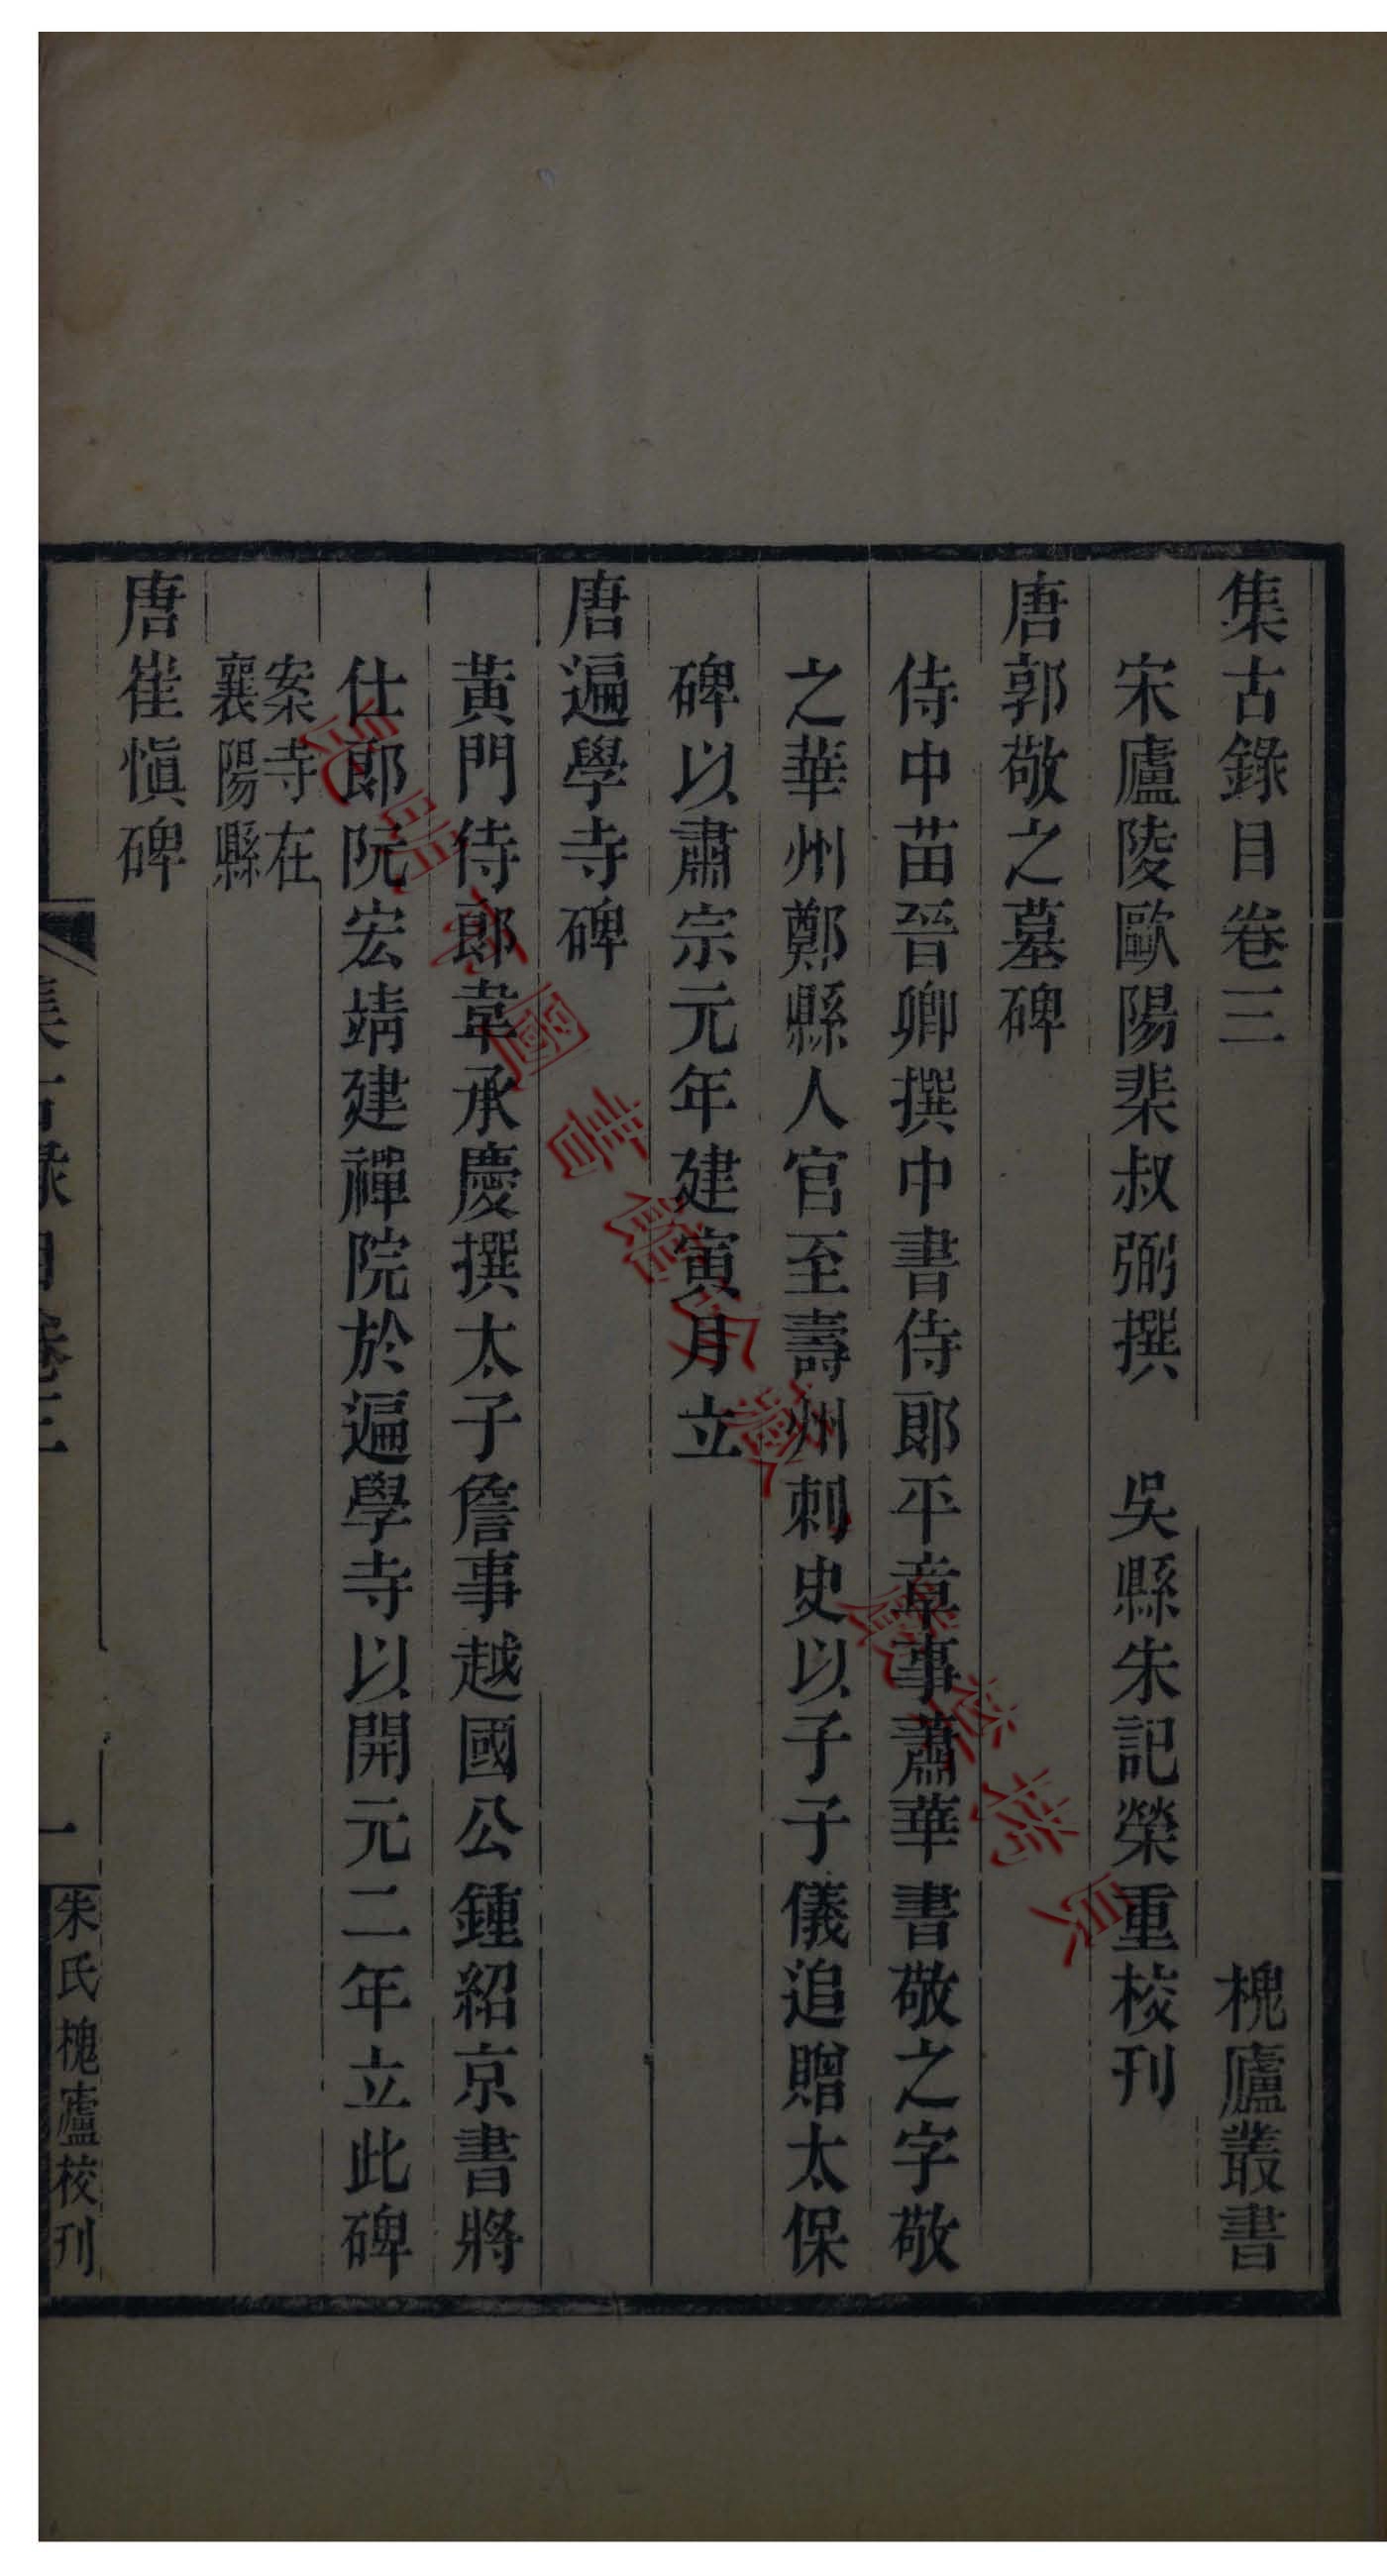 集古錄目卷三　槐廬叢書
宋廬陵歐陽棐叔弼撰　吳縣朱記榮重校刊
唐郭敬之墓碑
侍中苗晉卿撰中書侍郎平章事蕭華書敬之字敬
之華州鄭縣人官至壽州刺史以子子儀追贈太保
碑以肅宗元年建寅月立
唐遍學寺碑
黃門侍郎韋承慶撰太子詹事越國公鍾紹京書將
仕郎阮宏靖建禪院於遍學寺以開元二年立此碑
案寺在
襄陽縣
唐崔愼碑
集古錄目卷三　一　朱氏槐廬校刊